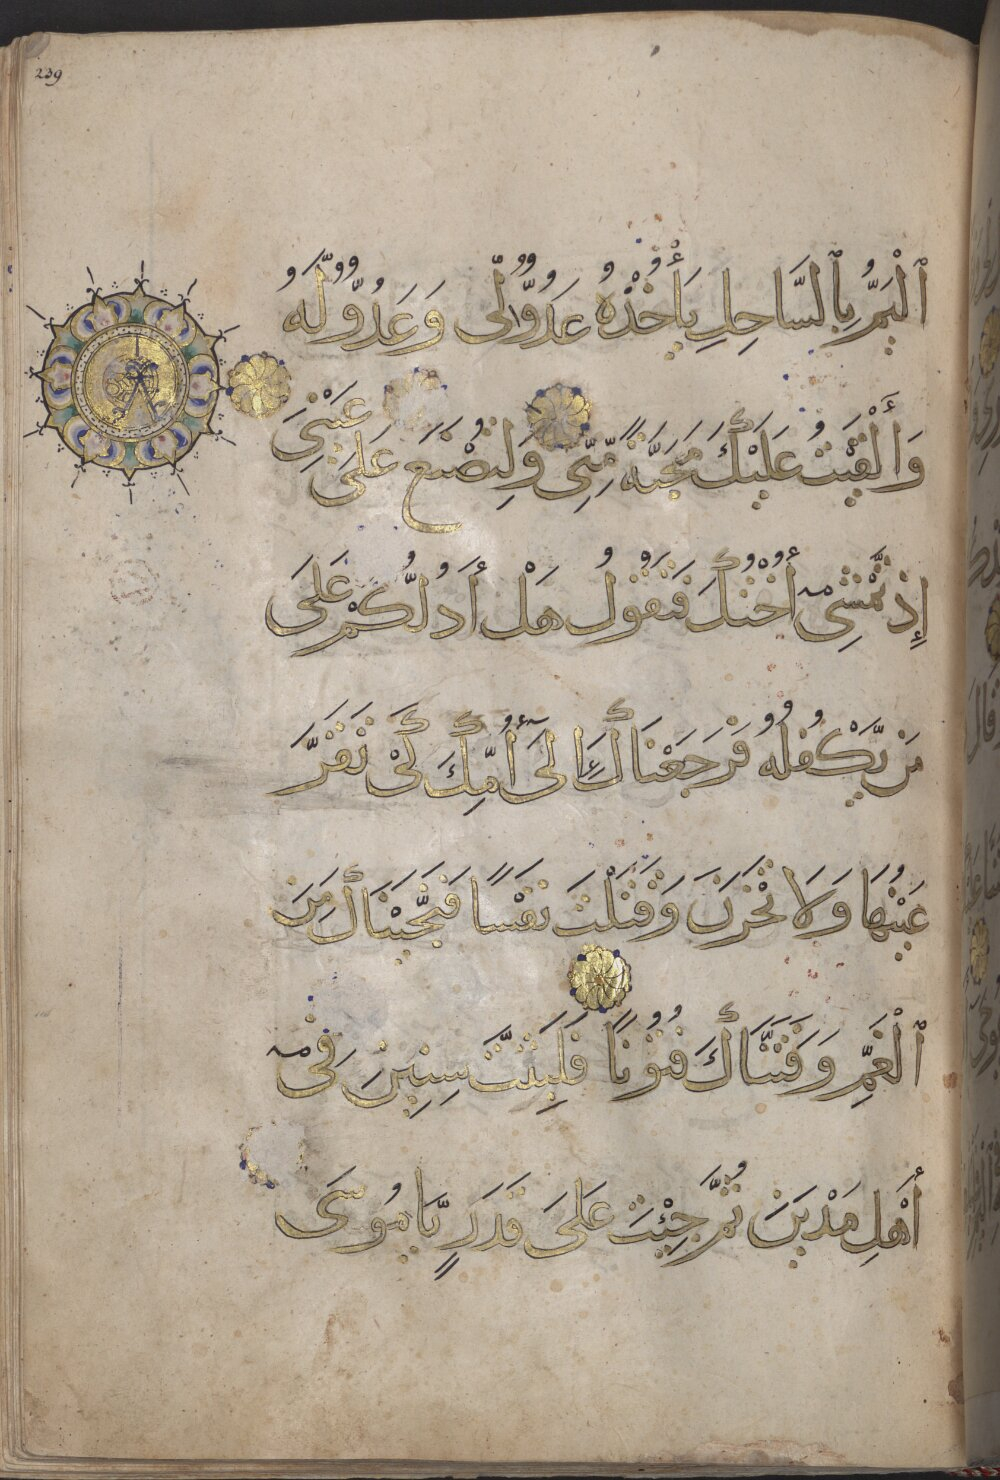 239
ٱلْيَمُّ بِٱلسَّاحِلِ يَأْخُذْهُ عَدُوٌّ لِّى وَعَدُوٌّ لَّهُ وَ
أَلْقَيْتُ عَلَيْكَ مَحَبَّةً مِّنِّى وَلِتُصْنَعَ عَلَىٰ عَيْنِى
إِذْ تَمْشِى أُخْتُكَ فَتَقُولُ هَلْ أَدُلُّكُمْ عَلَىٰ
مَن يَكْفُلُهُ فَرَجَعْنَاكَ إِلَىٰ أُمِّكَ كَىْ تَقَرَّ
عَيْنُهَا وَلَا تَحْزَنَ وَقَتَلْتَ نَفْسًا فَنَجَّيْنَاكَ مِنَ
ٱلْغَمِّ وَفَتَنَّاكَ فُتُونًا فَلَبِثْتَ سِنِينَ فِى
أَهْلِ مَدْيَنَ ثُمَّ جِئْتَ عَلَىٰ قَدَرٍ يَا مُوسَىٰ